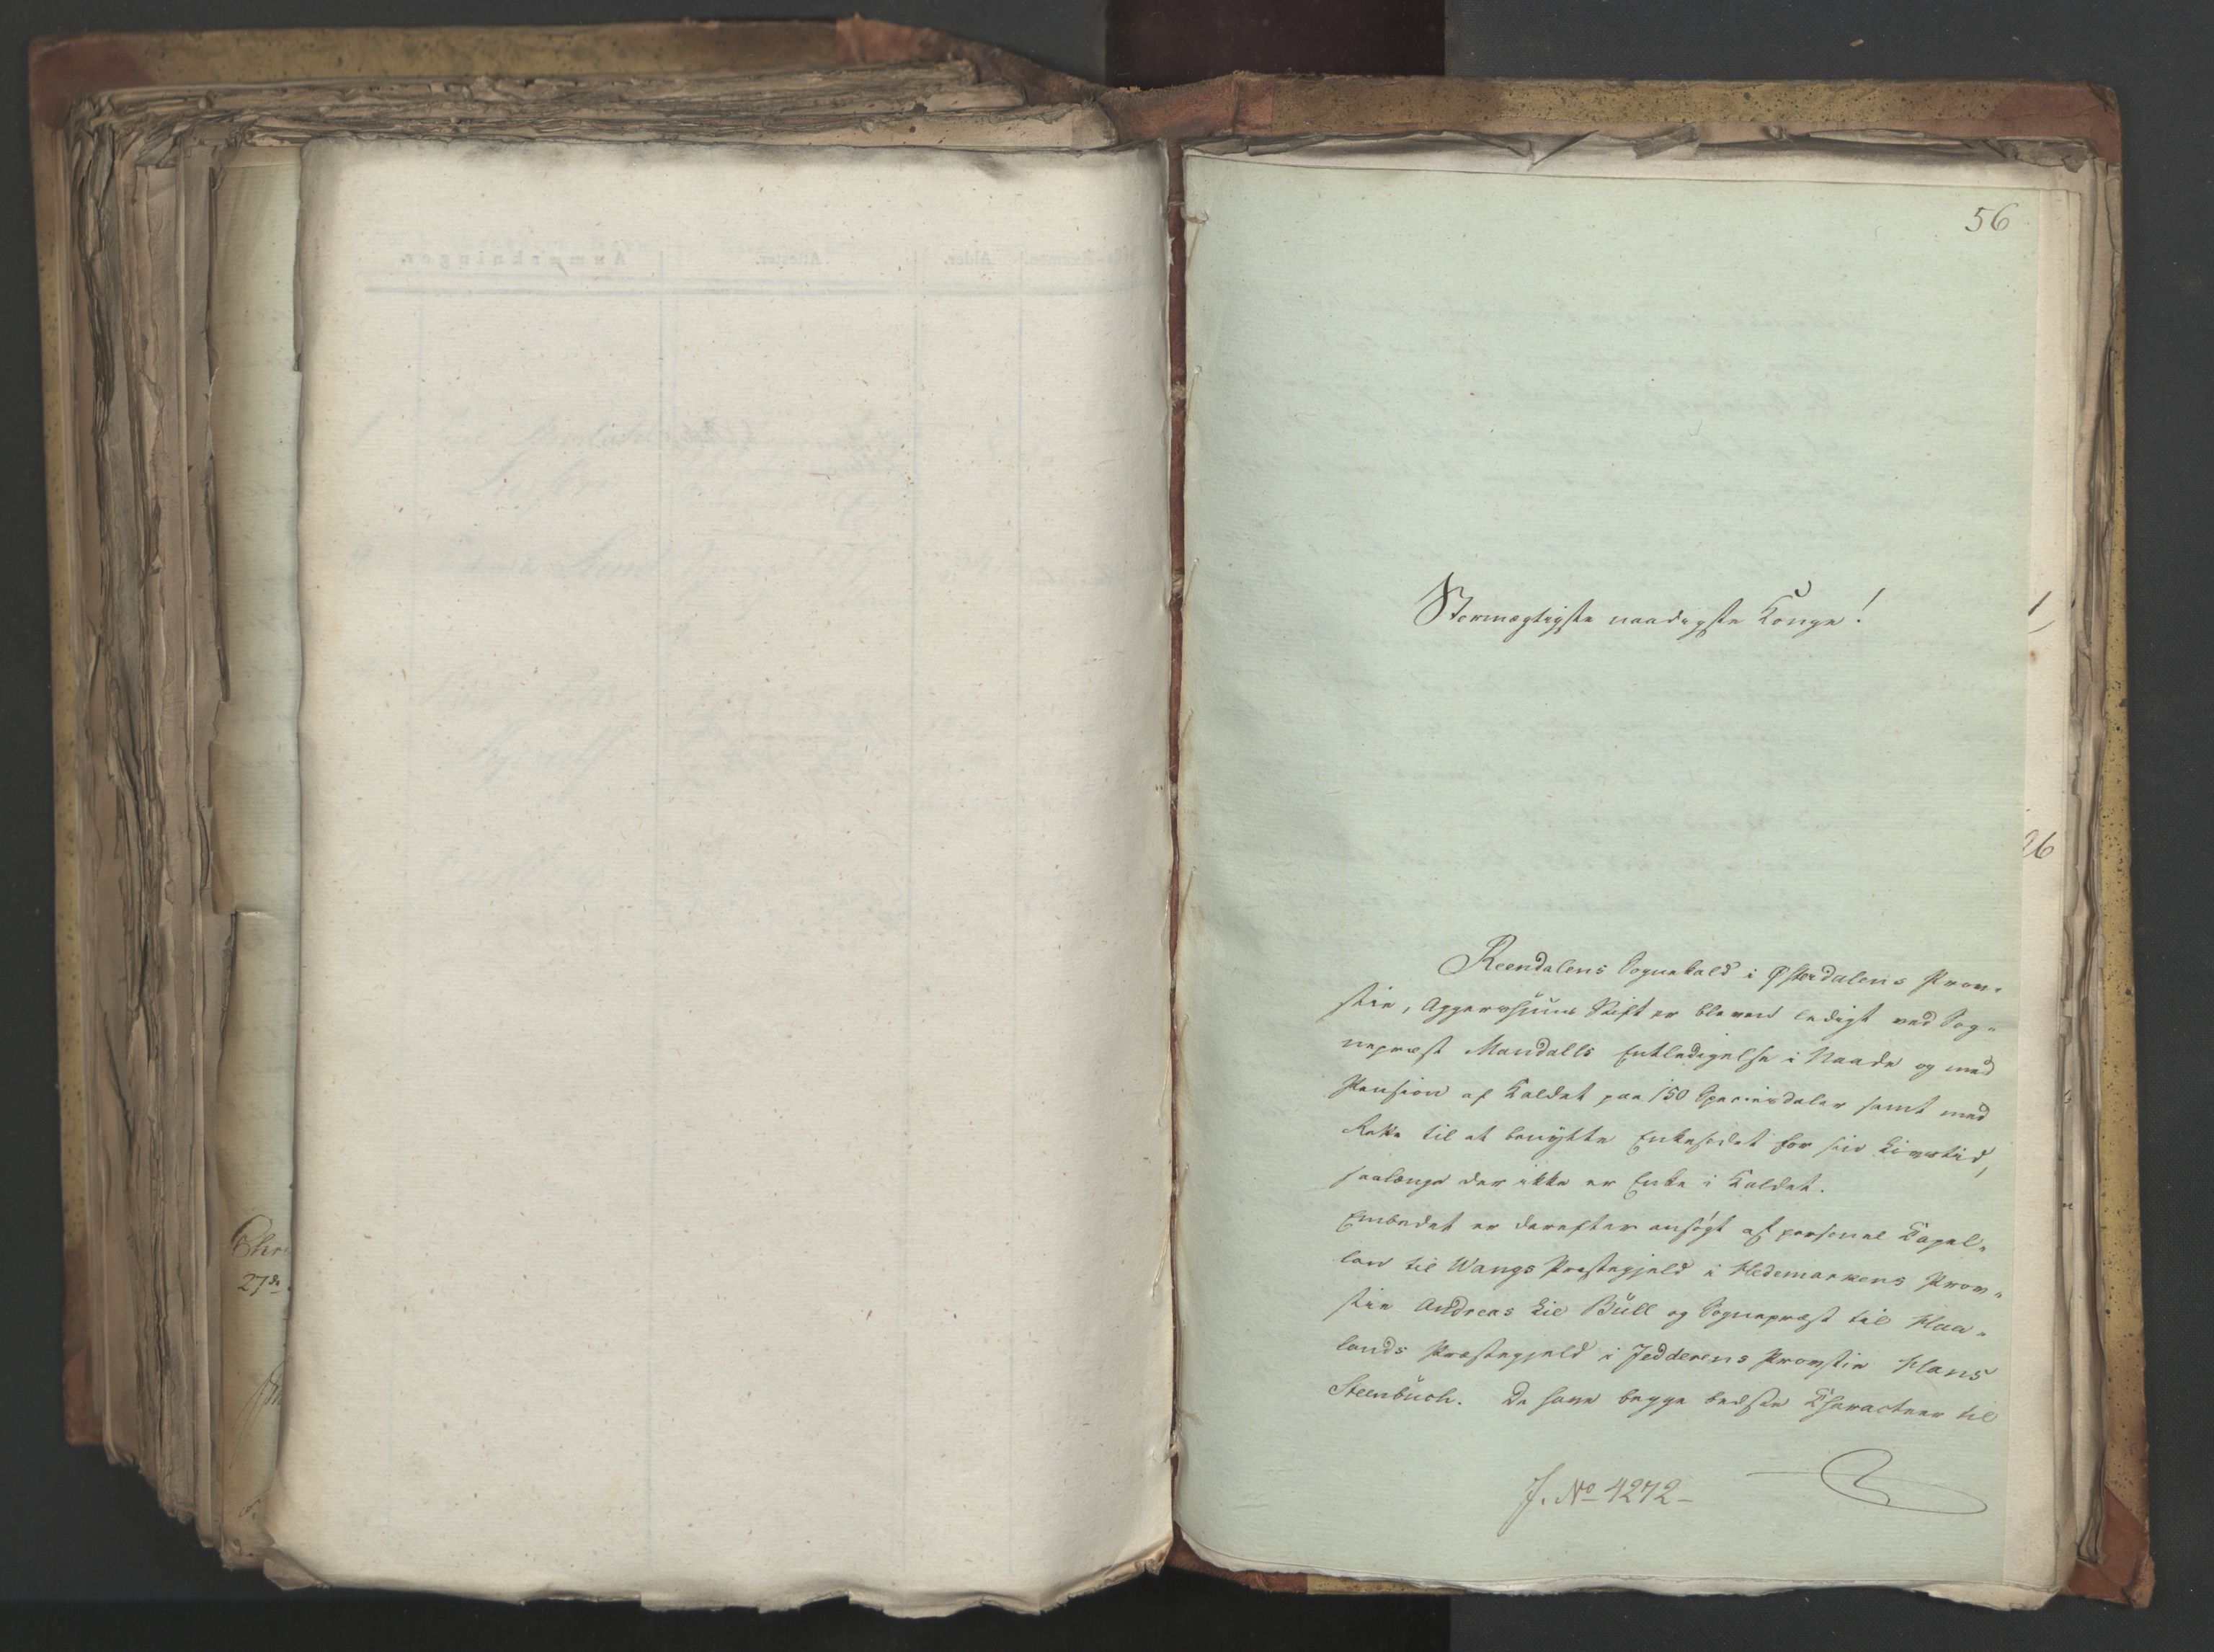 56
Stormægtigste naadigste Konge!
Reendalens Sognekald i Østerdalens Prov-
stie, Aggershuus Stift er bleven ledigt ved Sog-
nepræst Mandalls Entledigelse i Naade og med
Pension af Kaldet paa 150 Speciesdaler samt med
Rett til at benytte Enkesædet for sin Livstid,
saalænge der ikke er Enke i Kaldet.
Embedet er derefter ansøgt af personel Capel-
lan til Wangs Præstegjeld i Hedemarkens Prov-
stie Andreas Lie Büll og Sognepræst til Haa-
lands Præstegjeld i Jedderens Provstie Hans
Steenbuch. De have begge bedste Characteer til
J. No 4272-
26
Chri
27de